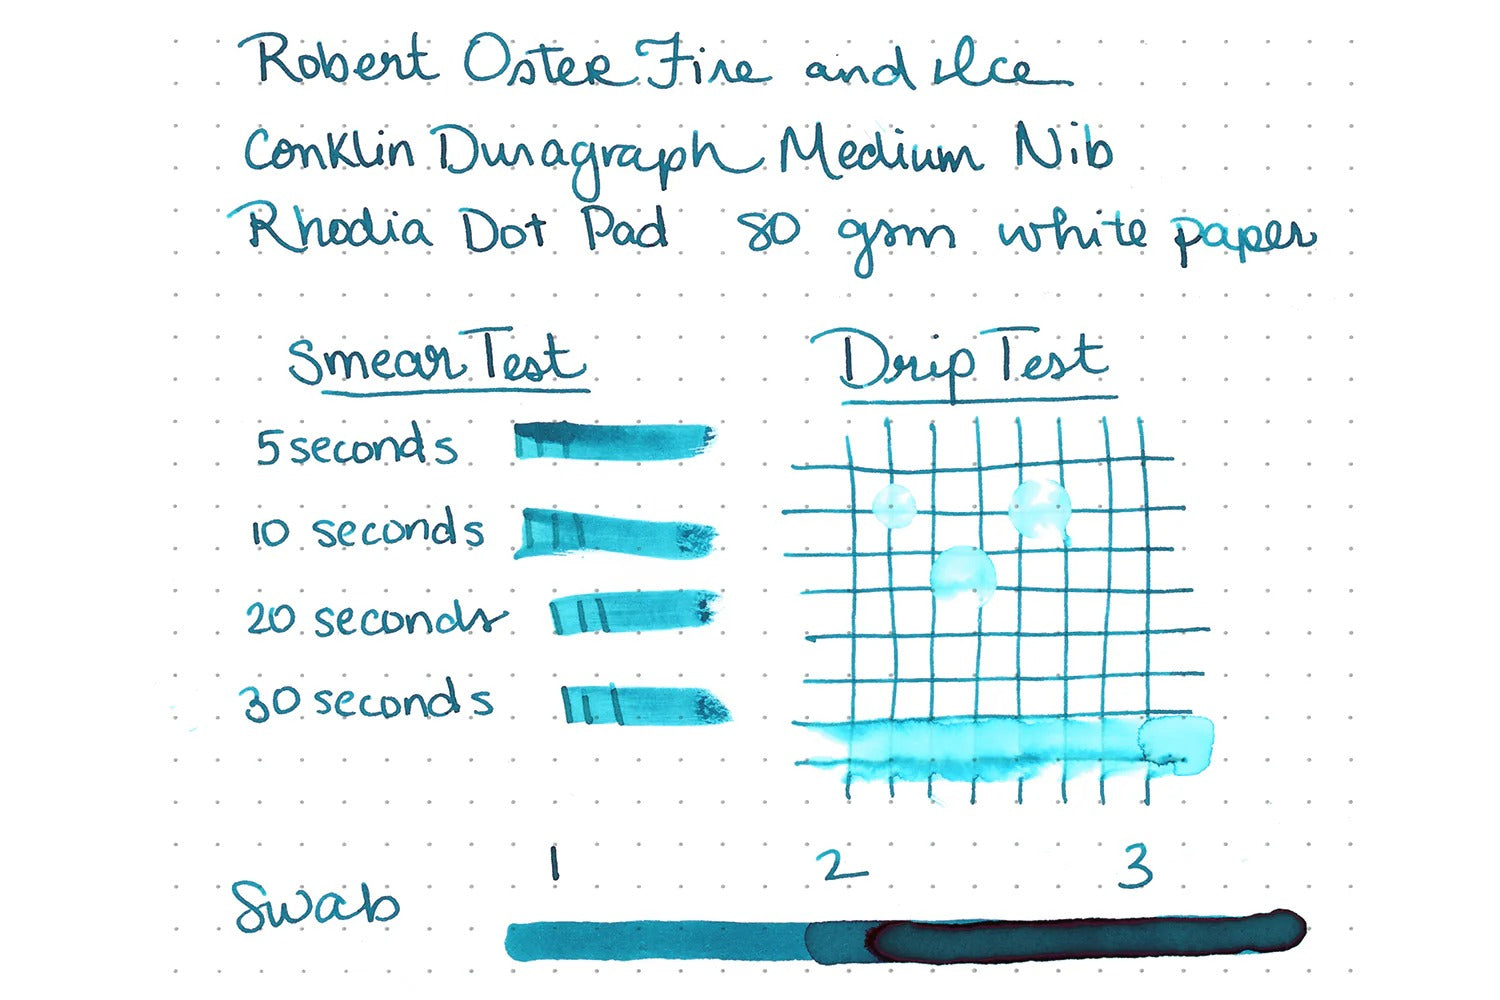 Robert Oster Fire and Ice
Conklin Duragraph Medium Nib
Rhodia Dot Pad 80 gsm white paper
Smear Test
Drip Test
5 seconds
10 seconds
20 seconds
30 seconds
1 2 3
Swab